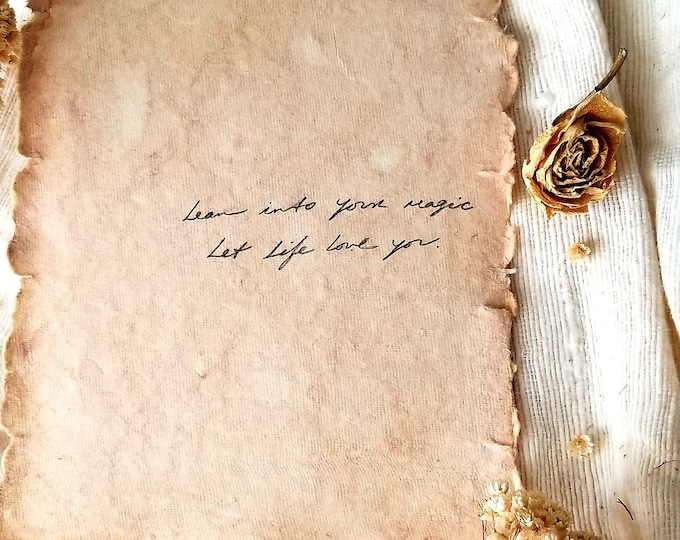 Lean into your magic
Let Life Love you.